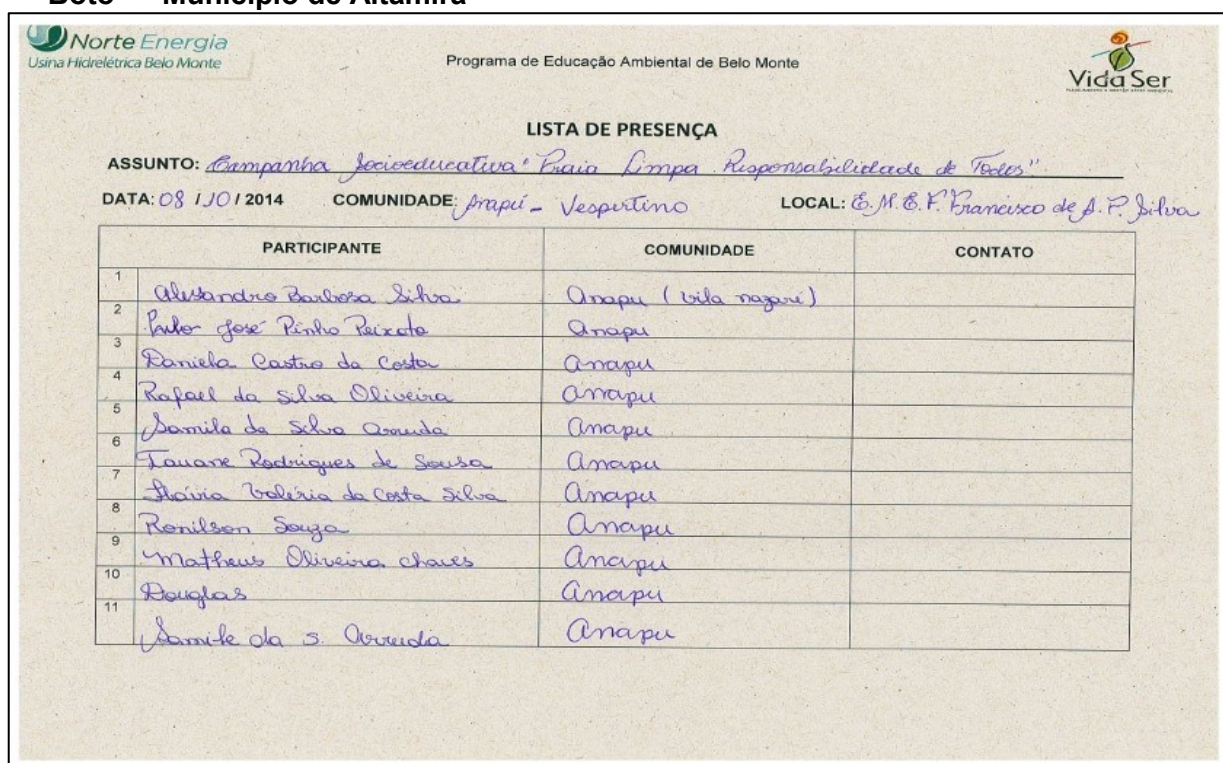 Município de Altamira
Norte Energia
Usina Hidrelétrica Belo Monte
Programa de Educação Ambiental de Belo Monte
Vida Ser
LISTA DE PRESENÇA
ASSUNTO: Campanha Socioeducativa "Praia Limpa Responsabilidade de Todos"
DATA: 08 / 10 / 2014 COMUNIDADE: Anapú - Vespertino LOCAL: E.M.E.F. Francisco de A. P. Silva
PARTICIPANTE COMUNIDADE CONTATO
1 Alessandro Barbosa Silva Anapu (vila nazaré)
2 José Pinho Peixoto Anapu
3 Daniela Castro da Costa Anapu
4 Rafael da Silva Oliveira Anapu
5 Samila da Silva Arruda Anapu
6 Tauane Rodrigues de Sousa Anapu
7 Flávia Valéria da Costa Silva Anapu
8 Ronilson Souza Anapu
9 Matheus Oliveira Chaves Anapu
10 Douglas Anapu
11 da S. Arruda Anapu